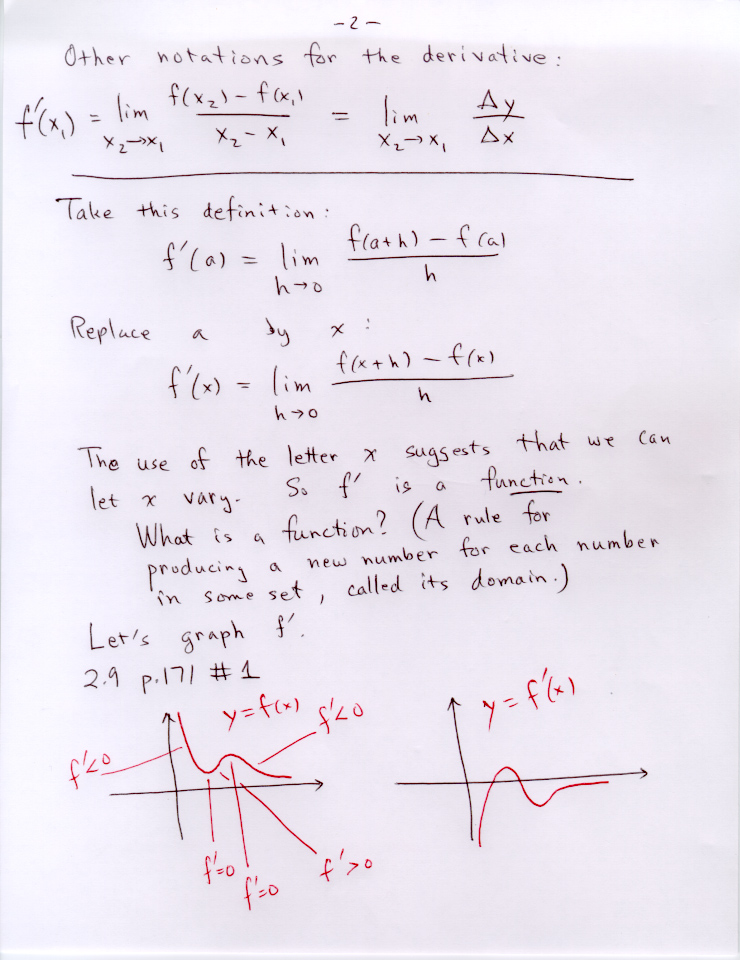 -2-
Other notations for the derivative:
f'(x₁) = lim x₂→x₁ (f(x₂) - f(x₁))/(x₂ - x₁) = lim x₂→x₁ Δy/Δx
Take this definition:
f'(a) = lim h→0 (f(a+h) - f(a))/h
Replace a by x:
f'(x) = lim h→0 (f(x+h) - f(x))/h
The use of the letter x suggests that we can
let x vary. So f' is a function.
What is a function? (A rule for
producing a new number for each number
in some set, called its domain.)
Let's graph f'.
2.9 p.171 #1
y=f(x) f'<0
y=f'(x)
f'<0
f'=0
f'=0
f'>0